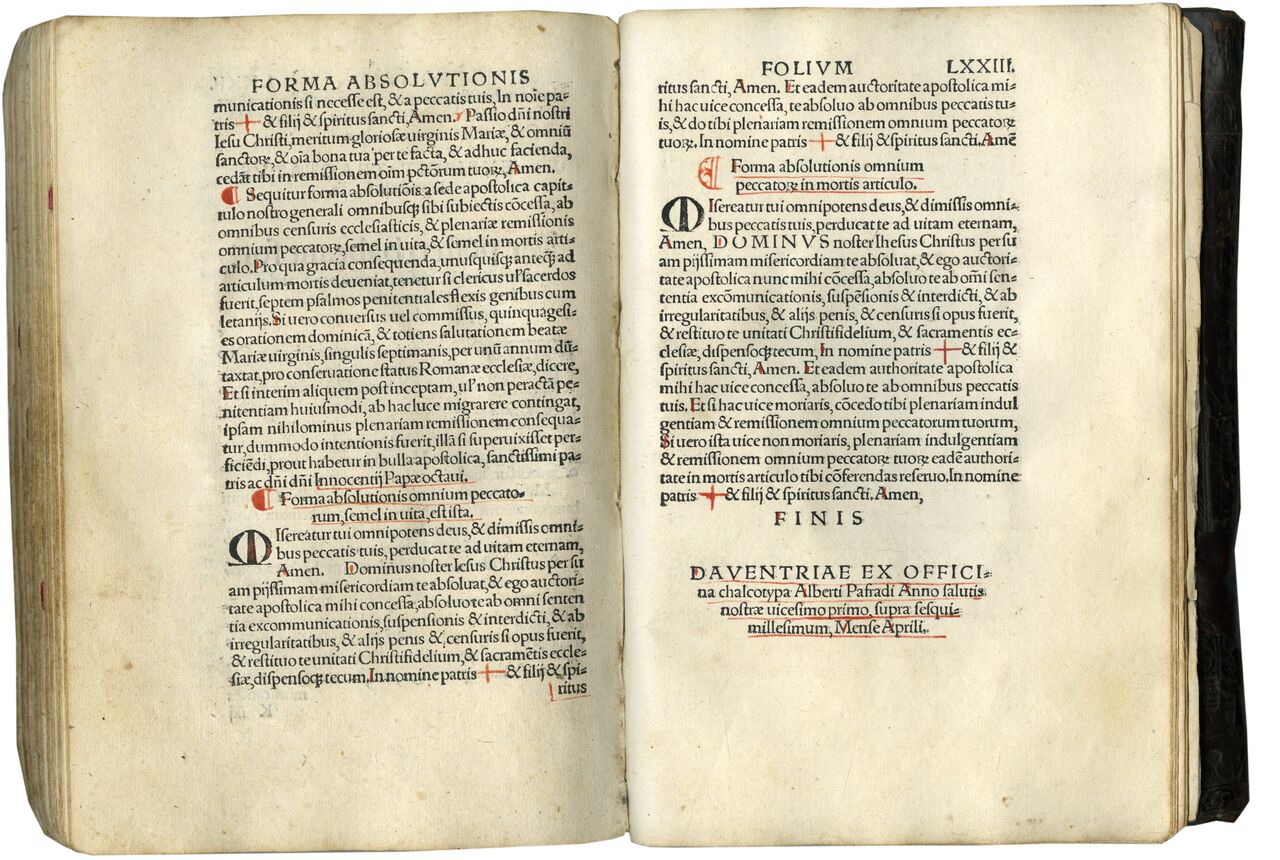 FORMA ABSOLVTIONIS
municationis si necesse est, & a peccatis tuis, In noīe pa-
tris ✚ & filij & spiritus sancti, Amen. Passio dñi nostri
Iesu Christi, meritum gloriosæ virginis Mariæ, & omniū
sanctoꝝ, & oīa bona tua per te facta, & adhuc facienda,
cedāt tibi in remissionem oīm pctōrum tuoꝝ, Amen.
¶ Sequitur forma absolutiōis a sede apostolica capit-
tulo nostro generali omnibusq; sibi subiectis cōcessa, ab
omnibus censuris ecclesiasticis, & plenariæ remissionis
omnium peccatoꝝ, semel in uita, & semel in mortis arti-
culo. Pro qua gracia consequenda, unusquisq; anteq̄; ad
articulum mortis deueniat, tenetur si clericus ul' sacerdos
fuerit, septem psalmos penitentiales flexis genibus cum
letanijs. Si uero conuersus uel commissus, quinquagesi-
es orationem dominicā, & totiens salutationem beatæ
Mariæ uirginis, singulis septimanis, per unū annum dū-
taxtat, pro conseruatione status Romanæ ecclesiæ, dicere,
Et si interim aliquem post inceptam, ul' non peractā pe-
nitentiam huiusmodi, ab hac luce migrarere contingat,
ipsam nihilominus plenariam remissionem consequa-
tur, dummodo intentionis fuerit, illā si superuixisset per-
ficiēdi, prout habetur in bulla apostolica, sanctissimi pa-
tris ac dñi dñi Innocentij Papæ octaui.
¶ Forma absolutionis omnium peccato-
rum, semel in uita, est ista.
MIsereatur tui omnipotens deus, & dimissis omni-
bus peccatis tuis, perducat te ad uitam eternam,
Amen. Dominus noster Iesus Christus per su
am pijssimam misericordiam te absoluat, & ego auctori-
tate apostolica mihi concessa, absoluo te ab omni senten
tia excommunicationis, suspensionis & interdicti, & ab
irregularitatibus, & alijs penis & censuris si opus fuerit,
& restituo te unitati Christifidelium, & sacramētis eccle-
siæ, dispensoq; tecum, In nomine patris ✚ & filij & spi-
ritus
FOLIVM LXXIII.
ritus sancti, Amen. Et eadem auctoritate apostolica mi-
hi hac uice concessa, te absoluo ab omnibus peccatis tu-
is, & do tibi plenariam remissionem omnium peccatoꝝ
tuoꝝ. In nomine patris ✚ & filij & spiritus sancti. Amē
¶ Forma absolutionis omnium
peccatoꝝ in mortis articulo.
MIsereatur tui omnipotens deus, & dimissis omni-
bus peccatis tuis, perducat te ad uitam eternam,
Amen, DOMINVS noster Ihesus Christus per su
am pijssimam misericordiam te absoluat, & ego auctori-
tate apostolica nunc mihi cōcessa, absoluo te ab om̄i sen-
tentia excōmunicationis, suspēsionis & interdicti, & ab
irregularitatibus, & alijs penis, & censuris si opus fuerit,
& restituo te unitati Christifidelium, & sacramentis ec-
clesiæ, dispensoq; tecum, In nomine patris ✚ & filij &
spiritus sancti, Amen. Et eadem authoritate apostolica
mihi hac uice concessa, absoluo te ab omnibus peccatis
tuis. Et si hac uice moriaris, cōcedo tibi plenariam indul
gentiam & remissionem omnium peccatorum tuorum,
Si uero ista uice non moriaris, plenariam indulgentiam
& remissionem omnium peccatoꝝ tuoꝝ eadē authori-
tate in mortis articulo tibi cōferendas reseruo. In nomine
patris ✚ & filij & spiritus sancti. Amen,
FINIS
DAVENTRIAE EX OFFICI-
na chalcotypa Alberti Pafradi Anno salutis
nostræ uicesimo primo, supra sesqui-
millesimum, Mense Aprili.